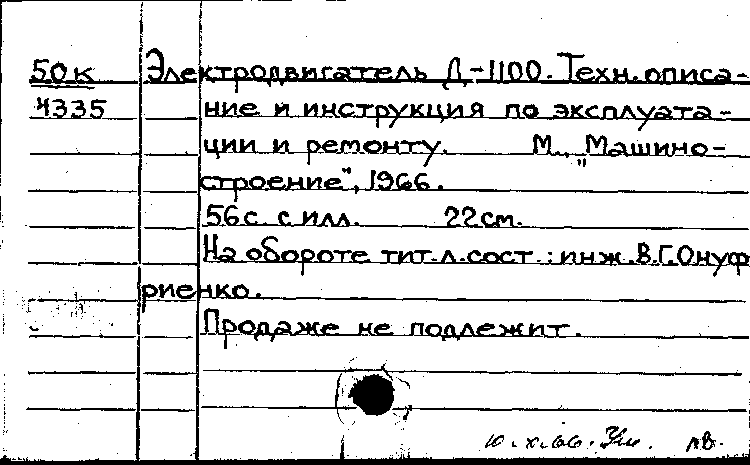 50к Электродвигатель Д-1100. Техн. описа-
4335 ние и инструкция по эксплуата-
ции и ремонту. М., „Машино-
строение", 1966.
56с. с илл. 22см.
На обороте тит. л. сост.: инж. В.Г. Онуф
риенко.
Продаже не подлежит.
10.X.66.